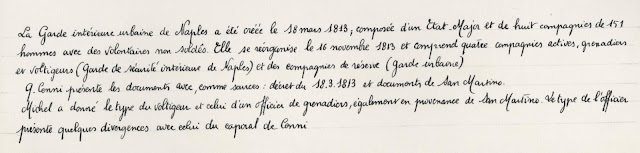 La Garde intérieure urbaine de Naples a été créée le 18 mars 1813, composée d'un État-Major et de huit compagnies de 151
hommes avec des volontaires non soldés. Elle se réorganise le 16 novembre 1813 et comprend quatre compagnies actives, grenadiers
et voltigeurs (Garde de sécurité intérieure de Naples) et des compagnies de réserve (garde urbaine)
Q. Cenni présente les documents avec, comme sources : décret du 18.3.1813 et documents de San Martino.
Michel a donné le type du voltigeur et celui d'un officier de grenadiers, également en provenance de San Martino. Le type de l'officier
présente quelques divergences avec celui du caporal de Cenni